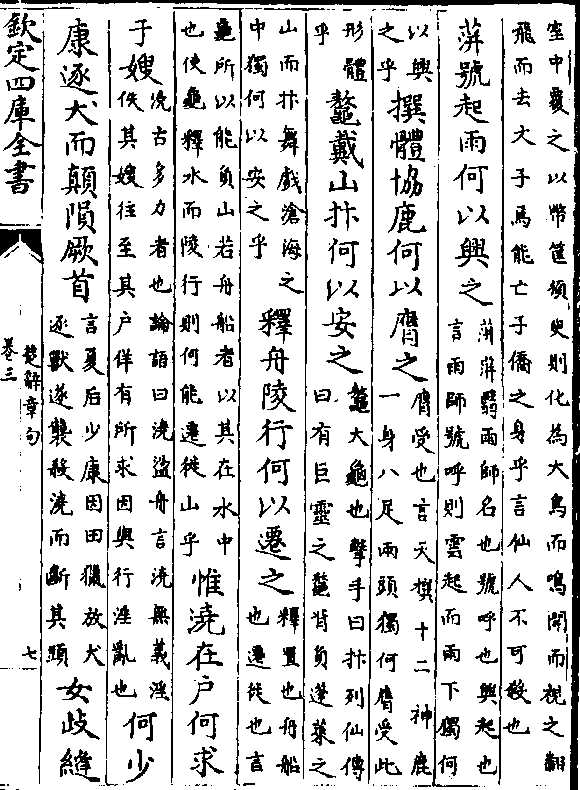 室中覆之以幣筐須臾則化為大鳥而鳴開而視之翻
飛而去文子焉能亡子僑之身乎言仙人不可殺也
蓱號起雨何以興之
蓱蓱翳雨師名也號呼也興起也
言雨師號呼則雲起而雨下獨何
以興
之乎
撰體協鹿何以膺之
膺受也言天撰十二神鹿
一身八足兩頭獨何膺受此
形體
乎
鼇戴山抃何以安之
鼇大龜也擊手曰抃列仙傳
曰有巨靈之鼇背負蓬萊之
山而抃舞戲滄海之
中獨何以安之乎
釋舟陵行何以遷之
釋置也舟船
也遷徙也言
龜所以能負山若舟船者以其在水中
也使龜釋水而陵行則何能遷徙山乎
惟澆在戶何求
于嫂
澆古多力者也論語曰澆盪舟言澆無義淫
佚其嫂往至其戶佯有所求因與行淫亂也
何少
康逐犬而顛隕厥首
言夏后少康因田獵放犬
逐獸遂襲殺澆而斷其頭
女歧縫
欽定四庫全書
楚辭章句
卷三
七